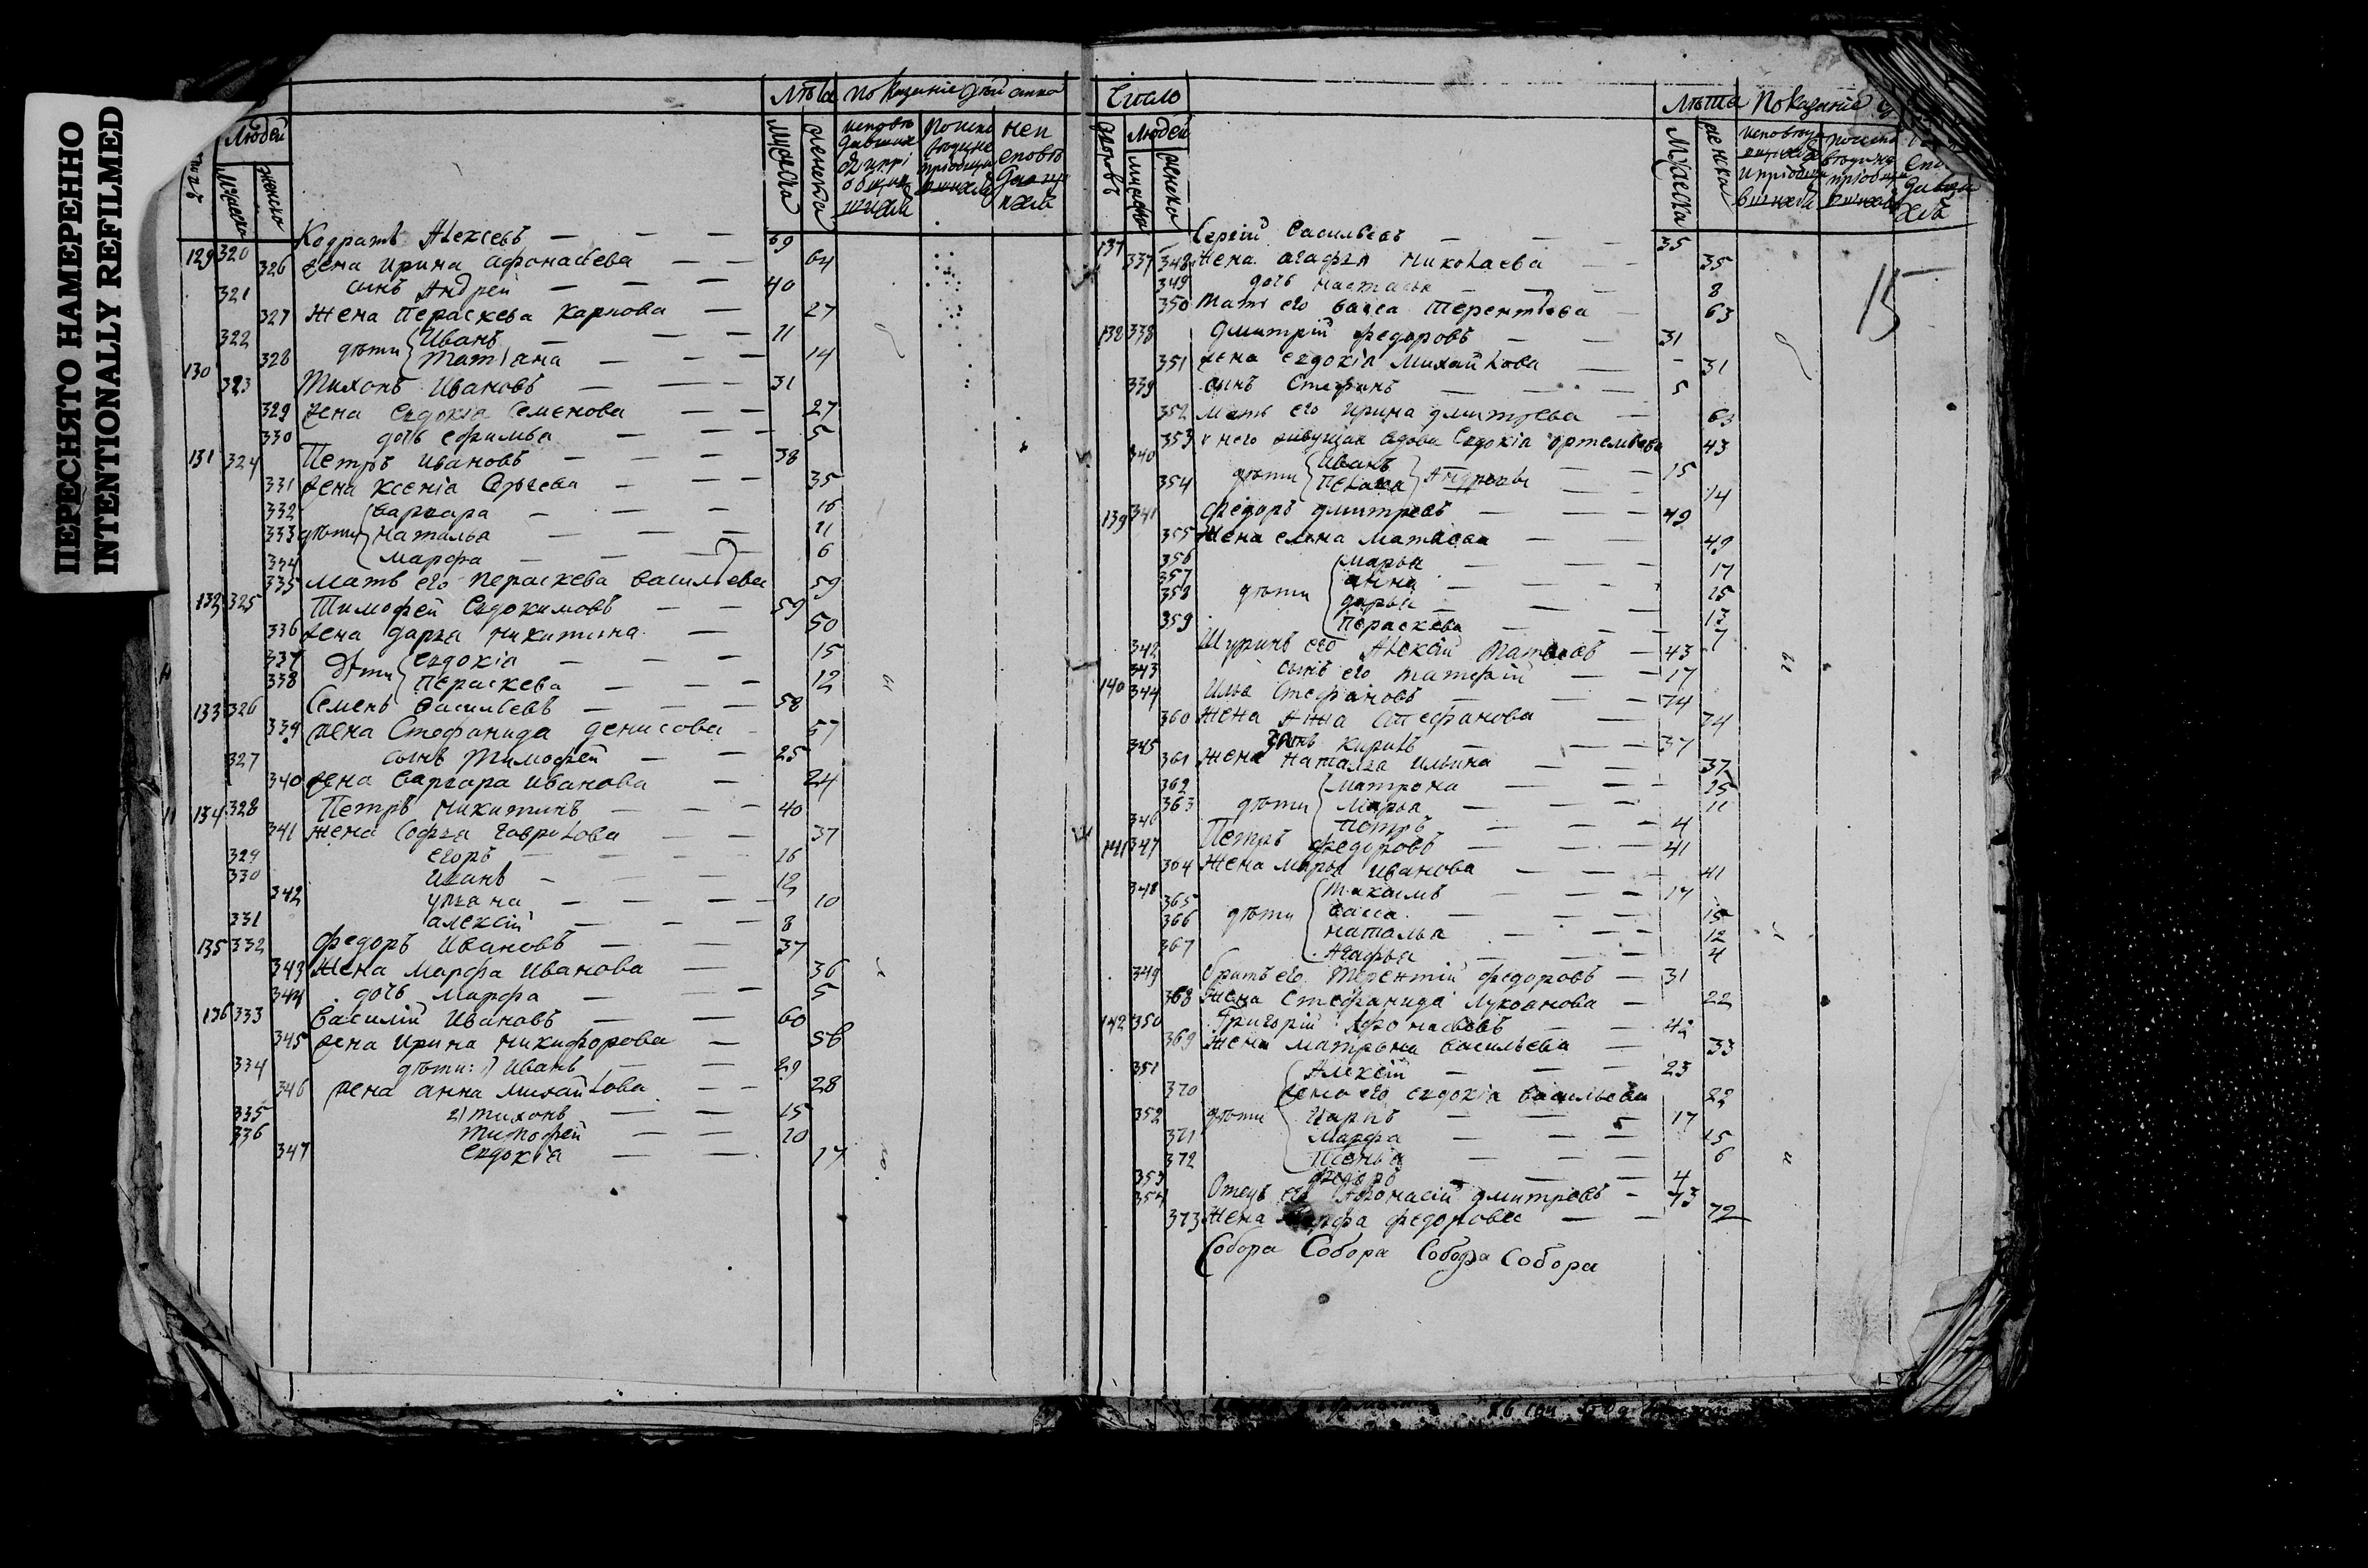 ПЕРЕСНЯТО НАМЕРЕННО
INTENTIONALLY REFILMED
Лѣта Показаніе
Людей
Мужеска Женска
129 320 Кодратъ Алексеевъ — — — 69
326 жена Ирина Афонасьева — — 64
321 сынъ Андрей — — — 40
327 Жена Пераскева Карпова — 27
322 Иванъ — 11
328 дѣти Татіана — — — 14
130 323 Тихонъ Ивановъ — — — 31
329 жена Евдокіа Семенова — — 27
330 дочь Ефимья — — — 5
131 324 Петръ Ивановъ — — — 38
331 жена Ксеніа Сергеева — — — 35
332 Варвара — — — 16
333 дѣти Наталья — — — 11
334 Марфа — — — 6
335 Мать его Пераскева Васильева 59
132 325 Тимофей Евдокимовъ — — 59
336 жена Дарья Никитина — 50
337 дѣти Евдокіа — — — 15
338 Пераскева — — — 12
133 326 Семенъ Васильевъ — — — 58
339 жена Стефанида Денисова — 57
327 сынъ Тимофей — — 25
340 жена Варвара Иванова — 24
134 328 Петръ Никитинъ — — — 40
341 жена Софья Гаврилова — — 37
329 Егоръ — — — 16
330 Иванъ — — — 12
342 Ульяна — — — 10
331 Алексій — — — 8
135 332 Федоръ Ивановъ — — 37
343 Жена Марфа Иванова — 36
344 дочь Марфа — — — 5
136 333 Василій Ивановъ — — 60
345 жена Ирина Никифорова — 56
334 дѣти: 1) Иванъ — — 29
346 жена Анна Михайлова — — 28
335 2) Тихонъ — — 15
336 Тимофей — — 10
347 Евдокіа — — 17
Число Лѣта Показаніе
дворовъ Людей
Мужеска Женска
15
137 337 Сергій Васильевъ — — — 35
348 Жена Агафья Николаева — — 35
349 дочь Настасья — — — 8
350 Мать его Васса Терентьева — 63
138 338 Дмитрій Федоровъ — — 31
351 жена Евдокіа Михайлова — 31
339 сынъ Стефанъ — — — 5
352 Мать его Ирина Дмитрева — 63
353 у него живущая вдова Евдокіа Артемьева 43
340 Иванъ — — 15
354 дѣти Пелагея — — 14
139 341 Федоръ Дмитревъ — — — 49
355 Жена Елена Матвеева — — 49
356 Марья — — — 17
357 Анна — — — 15
358 дѣти Дарья — — — 13
359 Пераскева — — — 7
342 Шуринъ его Алексій — 43
343 сынъ его — 17
140 344 Илья Стефановъ — — — 74
360 Жена Анна Стефанова — 74
345 сынъ Кирилъ — — — 37
361 Жена Наталья Ильина — — 37
362 Матрона — — — 15
363 дѣти Марья — — — 11
346 Петръ — — — 4
141 347 Петръ Федоровъ — — — 41
364 Жена Марья Иванова — — — 41
348 Максимъ — — — 17
365 Васса — — — 15
366 дѣти Наталья — — — 12
367 Агафья — — — 4
349 Братъ его Терентій Федоровъ — 31
368 Жена Стефанида Лукоанова — 22
142 350 Григорій Афонасьевъ — — 42
369 Жена Матрона Васильева — 33
351 Алексій — — — 23
370 жена его Евдокіа Васильева 22
352 дѣти Карпъ — — 17
371 Марфа — — — 15
372 — — — 6
353 Федоръ — — 4
354 Отецъ его Афонасій Дмитревъ — 73
373 Жена Марфа Федорова — — 72
Собора Собора Собора Собора